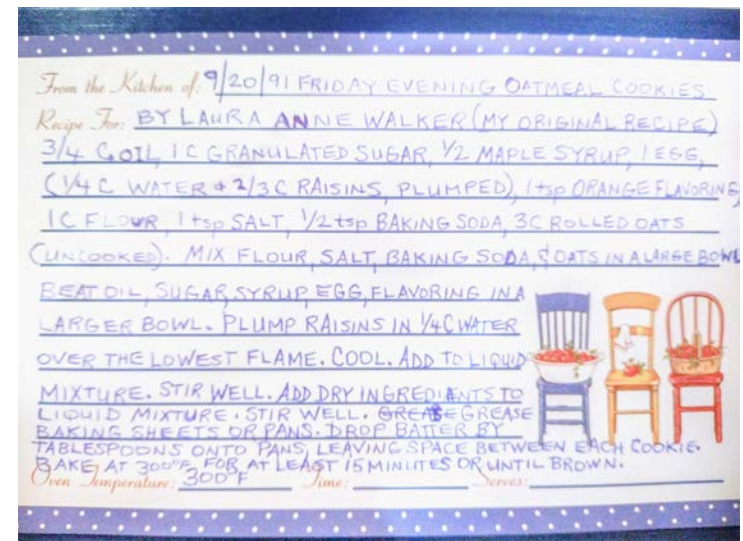 From the Kitchen of: 9/20/91 FRIDAY EVENING OATMEAL COOKIES
Recipe For: BY LAURA ANNE WALKER (MY ORIGINAL RECIPE)
3/4 C OIL, 1 C GRANULATED SUGAR, 1/2 MAPLE SYRUP, 1 EGG,
(1/4 C WATER & 2/3 C RAISINS, PLUMPED), 1 tsp ORANGE FLAVORING,
1 C FLOUR, 1 tsp SALT, 1/2 tsp BAKING SODA, 3C ROLLED OATS
(UNCOOKED). MIX FLOUR, SALT, BAKING SODA, & OATS IN A LARGE BOWL
BEAT OIL, SUGAR, SYRUP, EGG, FLAVORING IN A
LARGER BOWL. PLUMP RAISINS IN 1/4 C WATER
OVER THE LOWEST FLAME. COOL. ADD TO LIQUID
MIXTURE. STIR WELL. ADD DRY INGREDIENTS TO
LIQUID MIXTURE. STIR WELL. GREASE GREASE
BAKING SHEETS OR PANS. DROP BATTER BY
TABLESPOONS ONTO PANS, LEAVING SPACE BETWEEN EACH COOKIE.
BAKE AT 300°F FOR AT LEAST 15 MINUTES OR UNTIL BROWN.
Oven Temperature: 300°F Time: Serves: